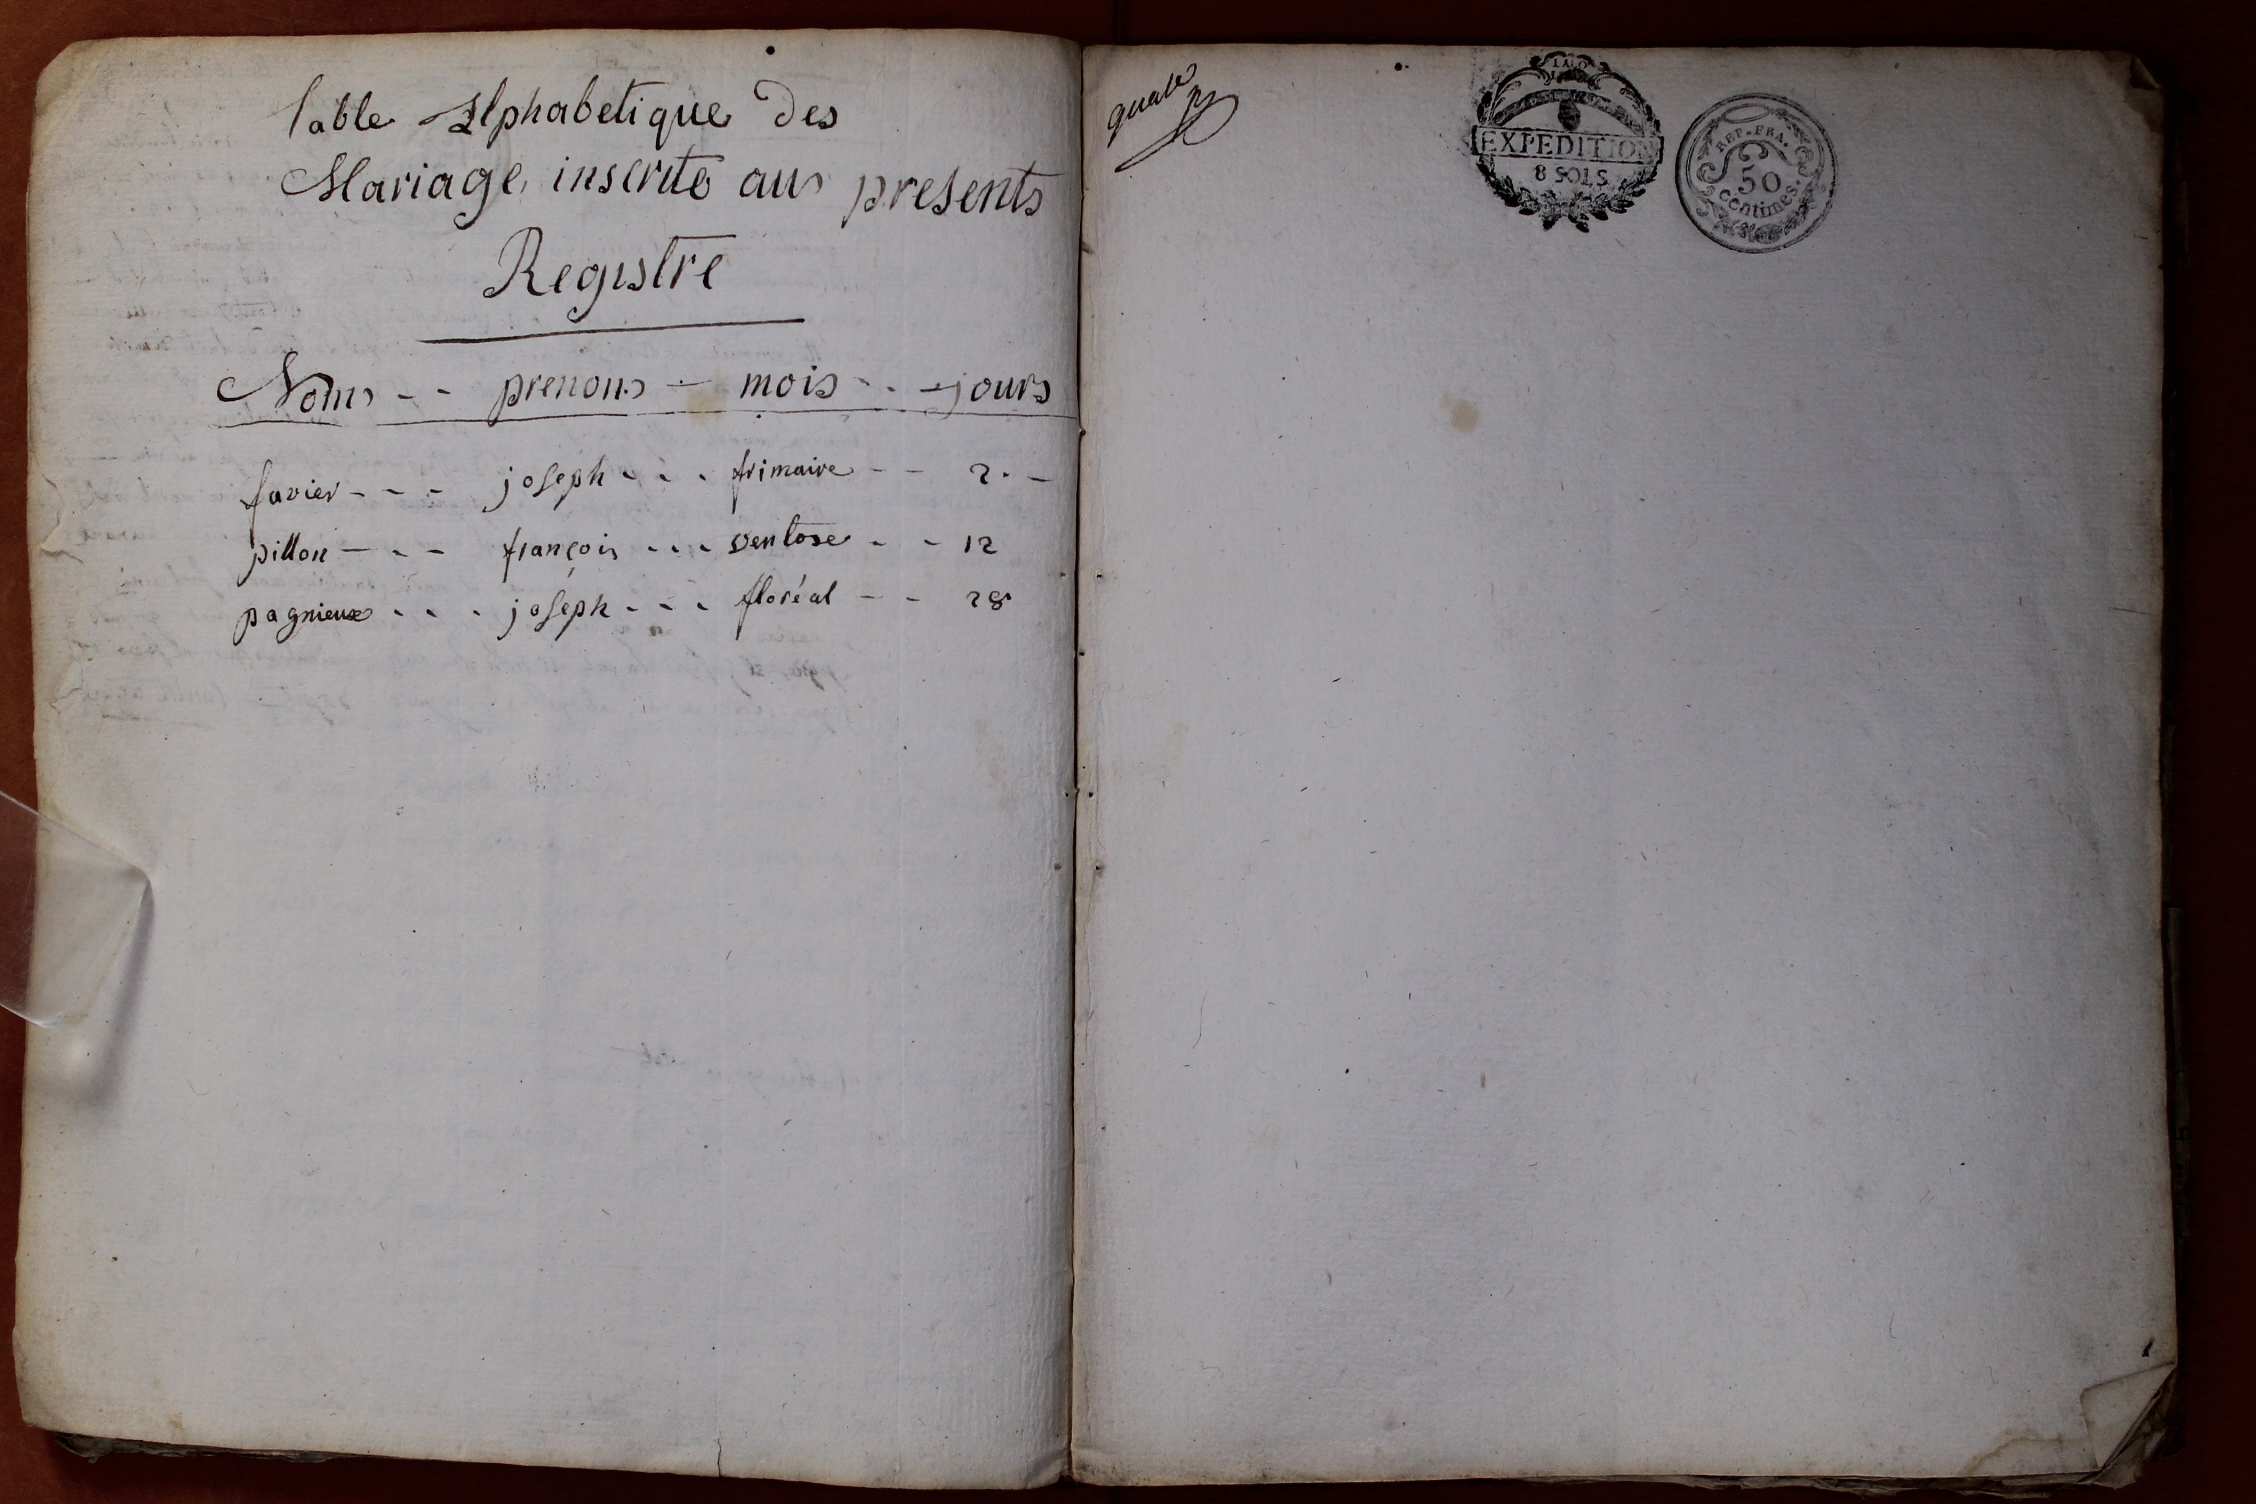 Table Alphabetique des
Mariage inscrite aux presents
Registre
Noms - - prenoms - mois - - jours
favier - - - joseph - - - frimaire - - 2 - -
pillon - - - françois - - - ventose - - 12
pagnieux - - - joseph - - - floréal - - 28
quatre
EXPEDITION
8 SOLS
REP. FRA.
50
centimes.